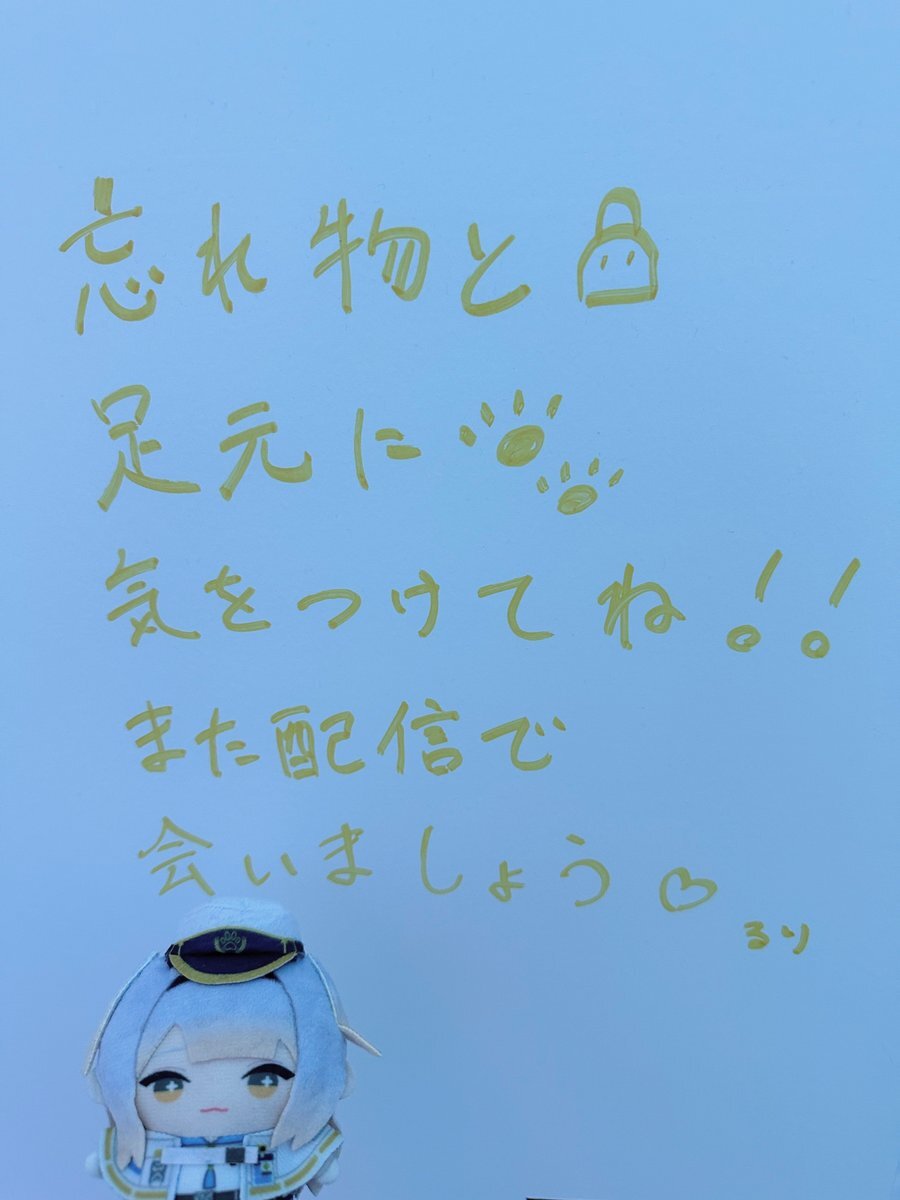 忘れ物と
足元に
気をつけてね!!
また配信で
会いましょう♡
るり